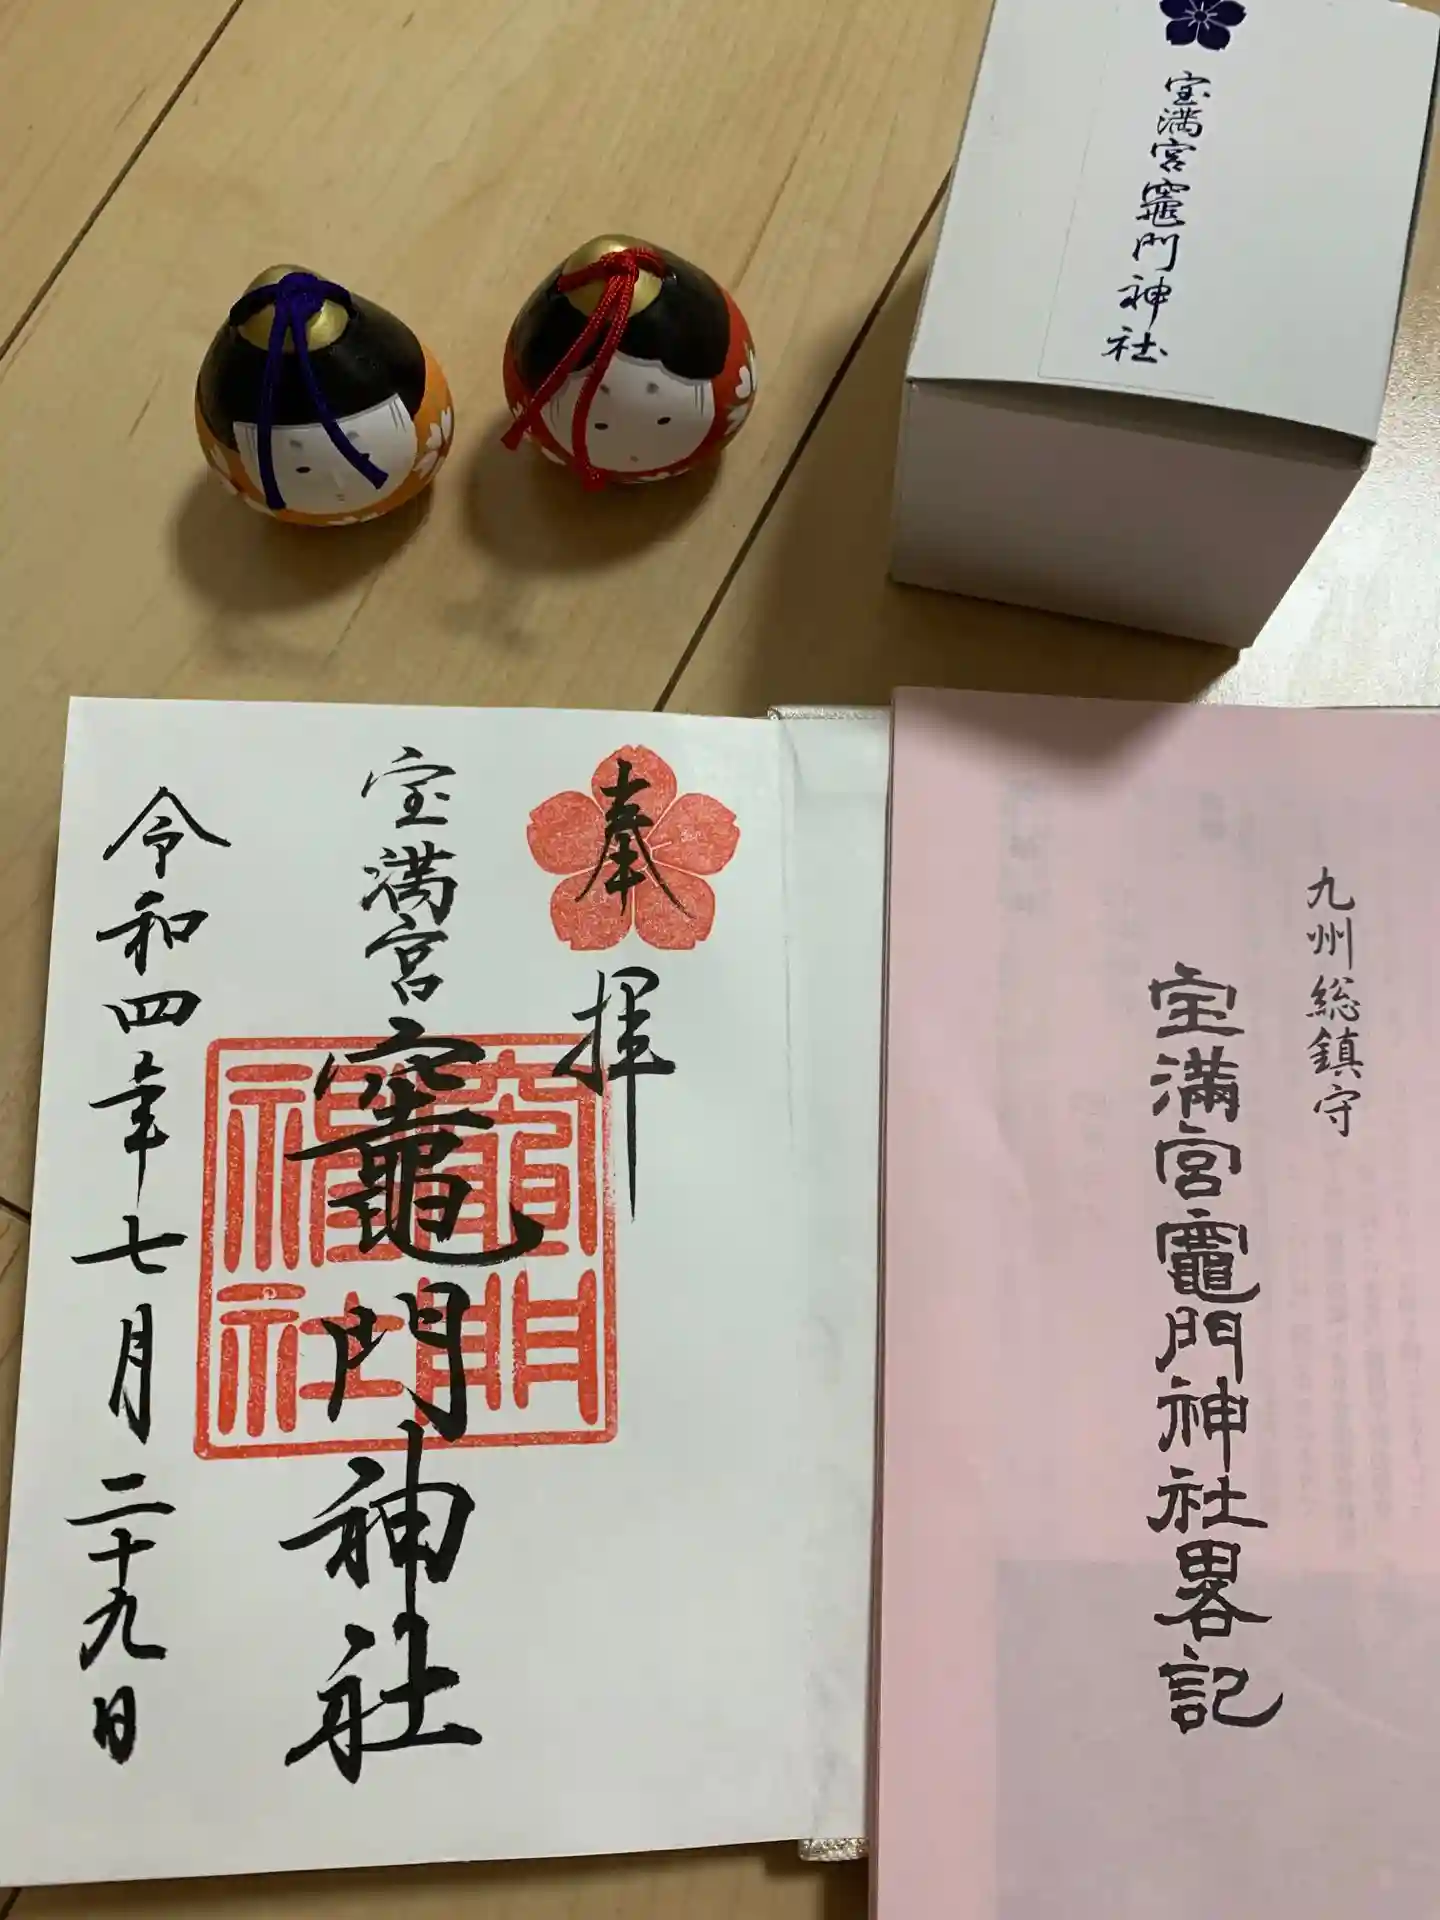 宝満宮竈門神社
奉拝
宝満宮竈門神社
令和四年七月二十九日
竈門
神社
九州総鎮守
宝満宮竈門神社畧記